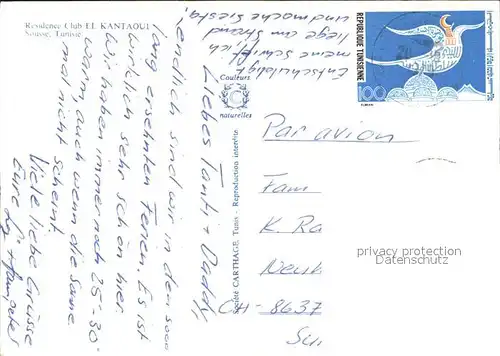 Residence Club EL KANTAOUI
Sousse, Tunisie
Entschuldigt
meine Schrift, ich
liege am Strand
und mache Siesta!
Liebes Tanti + Daddy,
endlich sind wir in den sooo
lang ersehnten Ferien. Es ist
wirklich sehr schön hier.
Wir haben immer noch 25-30°
warm, auch wenn die Sonne
mal nicht scheint.
Viele liebe Grüsse
Eure
Couleurs
naturelles
Société CARTHAGE, Tunis - Reproduction interdite
REPUBLIQUE TUNISIENNE
100
Par avion
Fam
K. Ra
CH-8637
privacy protection
VerkaeuferDatenschutz